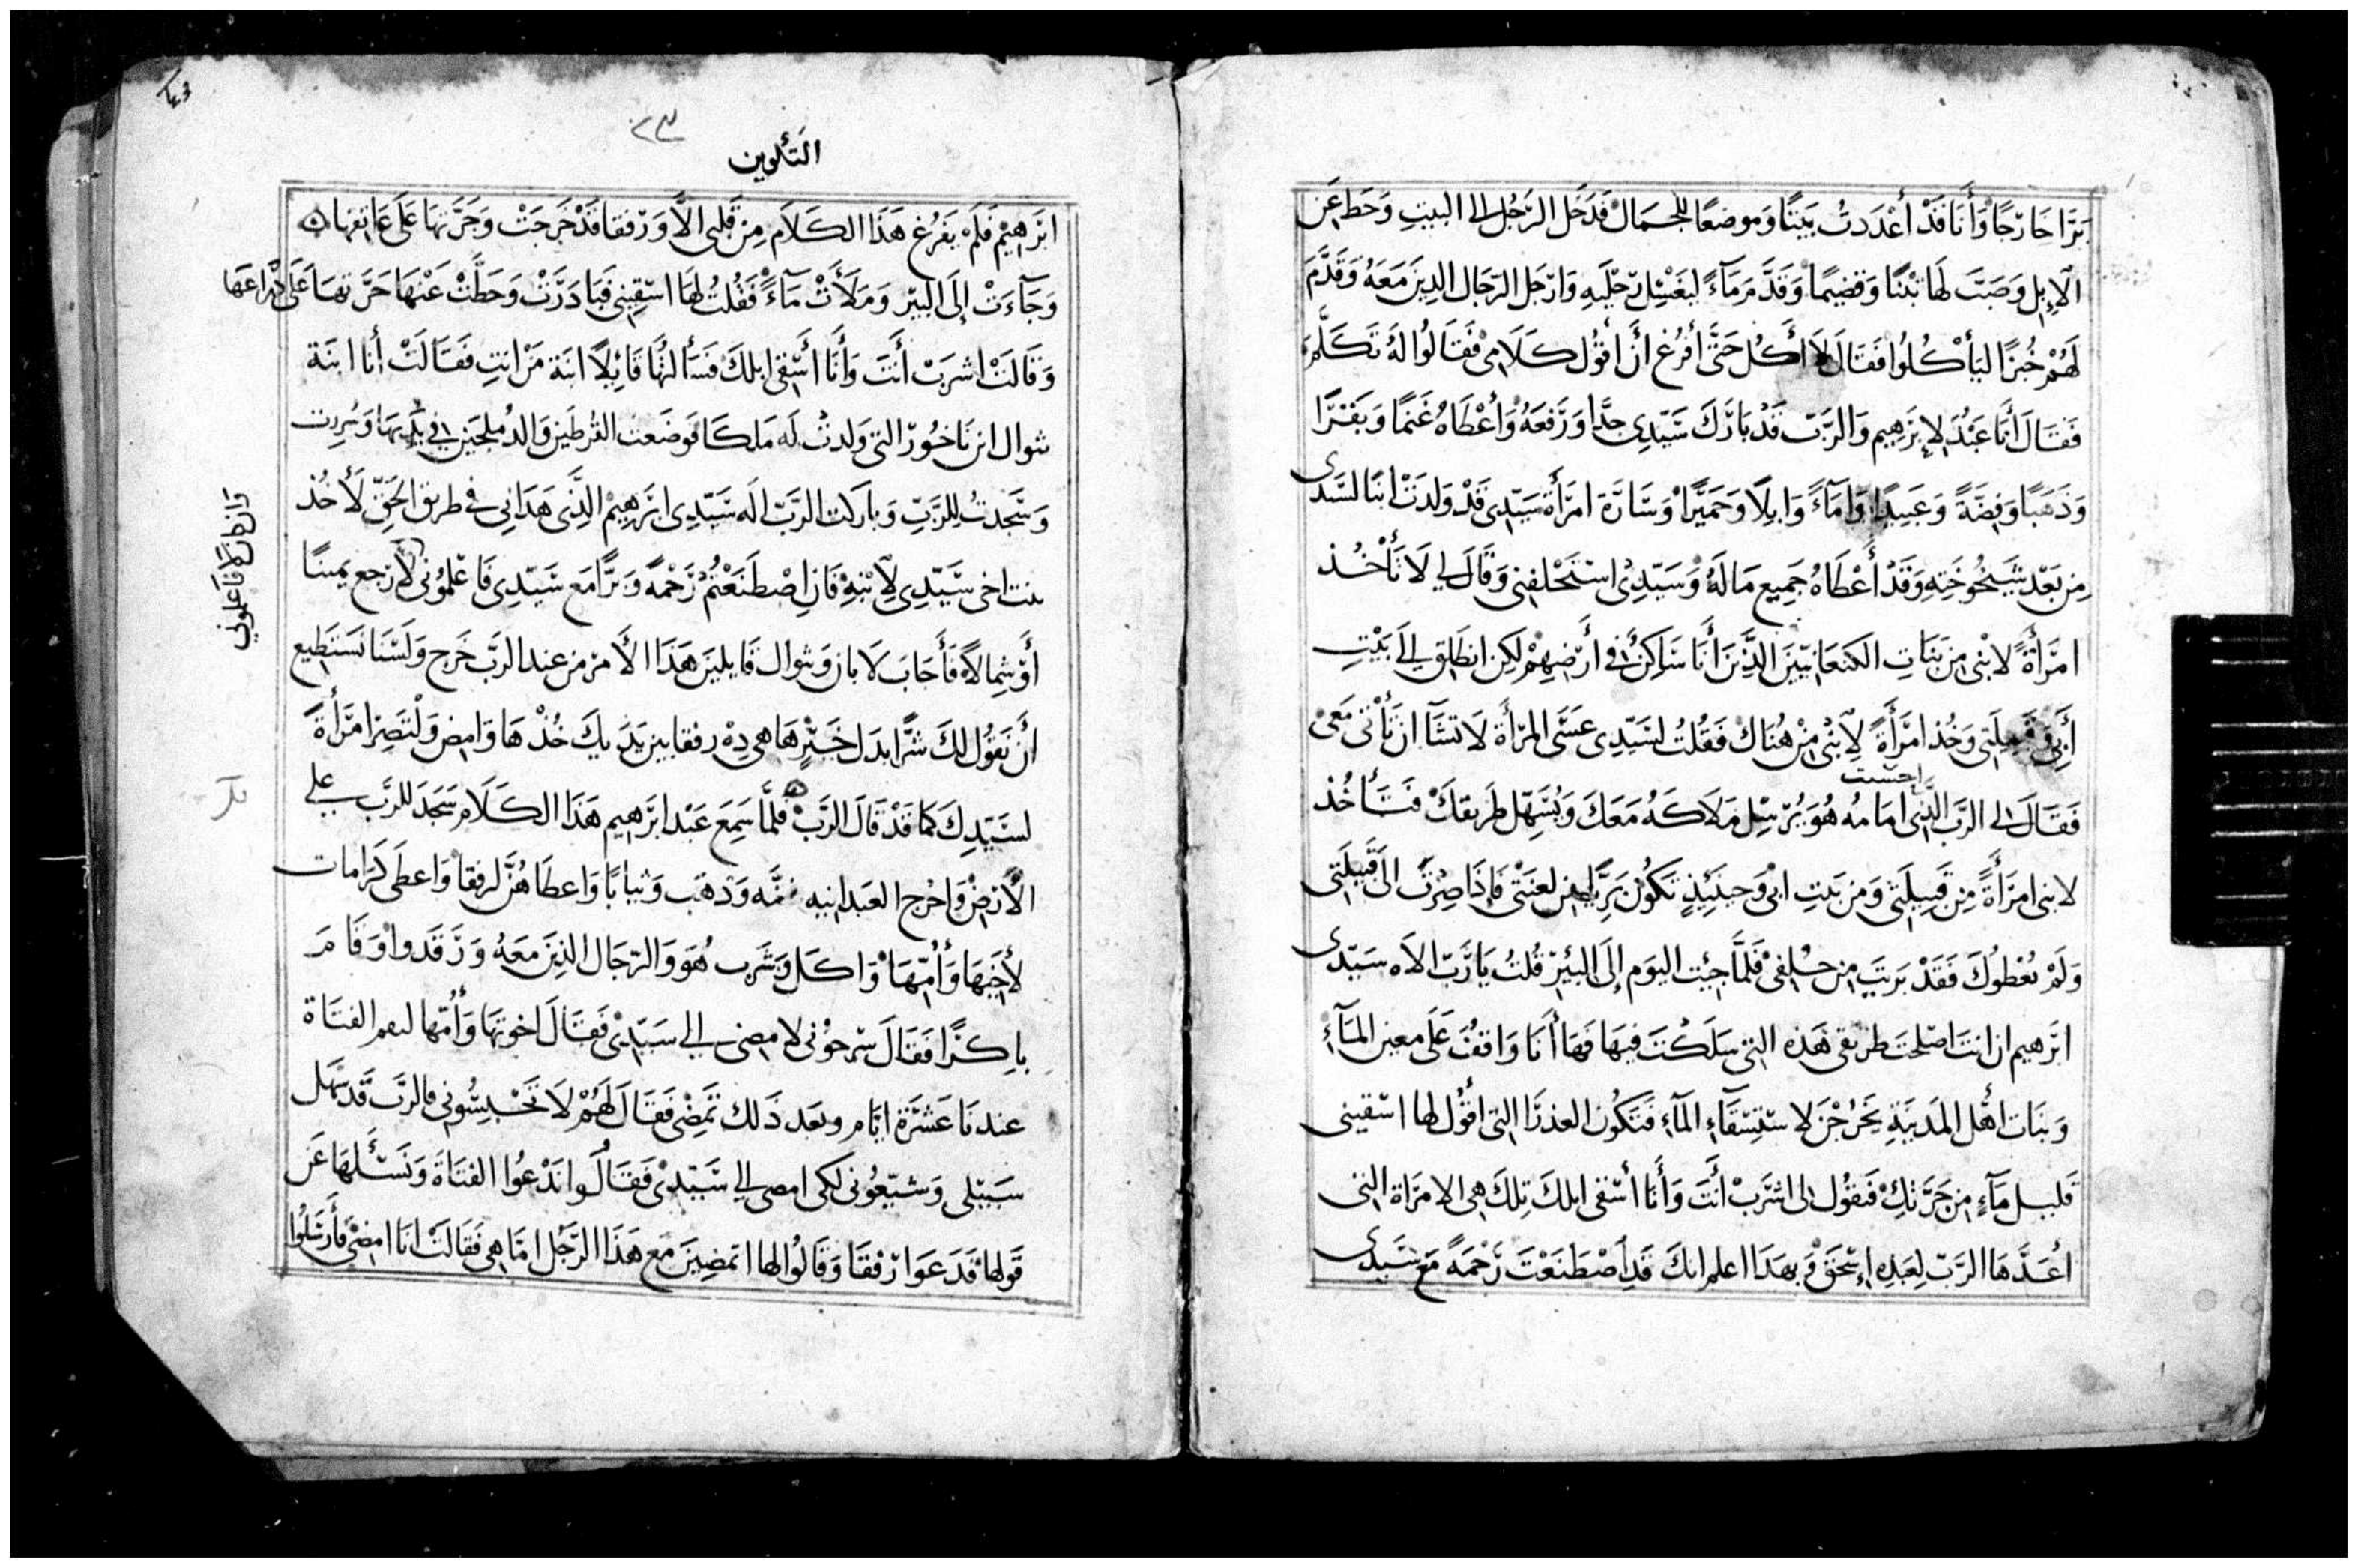 برّا خارجًا وَأَنَا قَدْ أَعْدَدتُ بَيتًا وَموضعًا للجمَال فَدَخَل الرّجُل الى البيتِ وَحَط عَن
الإبِل وَصَبّ لَهَا تبْنًا وَقضِيمًا وَقدَّمَ مَآءً ليغْسِل رجْليَهِ وَارْجَل الرّجَال الذِينَ مَعَهُ وَقَدَّمَ
لَهُمْ خُبزًا ليَأكُلُوا فَقَالَ لاَ أَكُل حَتَّى أفرُغ أن أقوُل كَلَامِى فَقَالوُا لهُ تَكَلَّم
فَقَالَ أنَا عَبْدٌ لإبرَهِيم وَالرّبّ قَدْ بَارَكَ سَيّدِى جدًّا وَرَفعَهُ وَأَعْطَاهُ غَنَمًا وَبَقَرًا
وَذَهَبًا وَفِضَّةً وَعَبِيدًا وَامَآءً وَابِلًا وَحَمِيرًا وَسَارَة امرَأة سَيّدِى قَدْ وَلدَتْ ابنًا لسَيّدى
مِن بَعْد شَيخُوخَتِهِ وَقَدْ أَعْطَاهُ جَمِيع مَالَهُ وَسَيّدِى اسْتَحْلفنِى وَقَالَ لِي لَا تَأْخُذ
امرَأةً لابْنى مِن بَنَاتِ الكنعَانيّينَ الذِّينَ أنَا سَاكِنٌ فى أَرْضِهِمْ لكِن انطَلِق إلَى بَيْتِ
أبِى وَقَبِيلَتِى وَخُذ امرَأَةً لِابْنِى مِنْ هُنَاكْ فَقُلتُ لسَيّدِى عَسَى المرْأة لَا تشَآ ان تَأْتى مَعِى
احسنت
فَقَالَ لى الرَبّ الذِّى امَامهُ هُوَ يُرْسِل مَلَاكَهُ مَعَكَ وَيُسَهّل طَرِيقكْ فَتَأخُذ
لابنى امرَأَةً مِن قَبِيلَتِى وَمِن بَيتِ ابِى وَحينَئِذٍ تَكوُن بَرِيًّا مِن لعنَتِى فَإذَا صِرْتَ الَى قَبِيلَتِى
وَلَمْ يُعْطوُكَ فَقَدْ بَريتَ مِن حَلِفى فَلَمَّا جِئت اليَوم إلَى البئِرِ قُلتُ يَا رَبّ الاَه سَيّدى
ابرَهيم ان انتَ اصلحتَ طرِيقى هَذِه التِى سَلَكْتَ فِيهَا فَهَا أنَا وَاقفٌ عَلَى معين المَآءِ
وَبنَات اهْل المَدِينَةِ يَخْرُجْنَ لاسْتِسْقَآءِ المآءِ فتَكُون العذرَا التِى اقوُل لهَا اسْقينى
قَليل مَآءٍ مِن جَرّتكِ فَتقوُل لى اشرَبْ أنتَ وَأَنَا أسْقى ابلكَ تِلكَ هى الامرَاة التى
أعَدَّهَا الرَبّ لِعَبدِهِ إسْحَقْ وَبِهَذَا اعلم انكَ قَدِ اصْطَنَعْتَ رَحْمَةً مَعَ سَيّدى
٢٣
التكوين
ابرَاهِيمْ فَلَمْ يَفرُغ هَذَا الكَلَام مِن قَلبى الاَّ وَرفقَا قَدْ خَرَجَتْ وَجَرَّتهَا عَلَى عَاتقهَا
وَجَآءَتْ إلَى البئِر وَمَلَأَتْ مَآءً فَقُلتُ لهَا اسْقِينِى فَبَادَرَتْ وَحَطَّتْ عَنْهَا جَرّتهَا عَلَى ذرَاعهَا
وَقَالَتْ اشرَبْ أَنتَ وَأَنَا أسْقى ابلكَ فَسَألتُهَا قَائِلًا ابنَة مَنْ انتِ فَقَالَتْ أنا ابنة
ثوال ابن نَاخُور التى وَلدتْ لَه مَلكَا فَوضَعت القُرطَين وَالدُملجَين فِي يَدَيهَا وَسُرِرت
وَسَجَدتُ للرَبّ وَبارَكت الرَبّ الَه سَيّدِى ابرَهِيمْ الذَّى هَدَانِى فى طريق الحَقّ لَأخُذ
بنت اخى سَيّدِى لِابْنِهِ فَانِ اصْطَنَعْتُمْ رَحْمةً وَبرًّا مَع سَيّدِى فَاعْلمُونى لارجع يمينًا
أوْ شِمالًا فَأجَابَ لَابان وَثوال قَايلينَ هَذَا الأَمر من عند الرَبّ خَرج وَلَسْنَا نَسْتَطِيع
أن نقوُل لكَ شرًّا بدَل خَيْرٍ هَا هِى ذِهْ رفقا بين يَدَيكَ خُذْهَا وَامض وَلتَصِرْ امرَأَةً
لسَيّدِكَ كمَا قَدْ قَالَ الرَبّ فَلمَّا سَمِعَ عَبْد ابرَهيم هَذَا الكَلَام سَجَدَ للرَبّ عَلى
الأرْض وَاخرج العَبد انيه وَذهَب وَثيابًا وَاعطَاهُنَّ لرفقا وَاعطى كرَامات
لأخِيَها وَأُمّهَا وَاكَل وَشَرب هُوَ وَالرّجَال الذِينَ مَعَهُ وَرَقدوا وَقَامَ
باكِرًا فَقَالَ سَرحُونى لامضى إلى سَيّدِى فَقَالَ اخوتهَا وَأُمّها لتقم الفتَاة
عندنَا عَشرَة ايّام وبَعد ذَلك تَمضى فَقَالَ لَهُمْ لَا تَحْبِسُونِى فالرَبّ قَد سَهل
سَبيلى وَشيّعُونى لكى امضى إلى سَيّدِى فَقَالوا نَدْعُوا الفتَاة وَنَسْئَلهَا عَن
قَولهَا فَدَعَوا رفْقَا وَقَالُوا لها اتمضِينَ مَع هَذَا الرَّجُل امَّا هِى فَقَالَتْ انَا امضى فَأرسَلُوا
وان كان لا فاعلموني